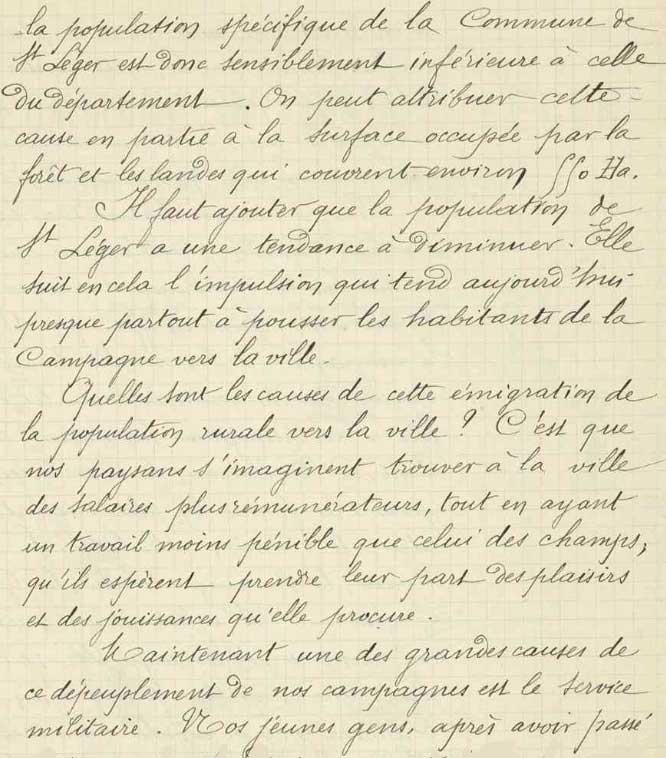 la population spécifique de la Commune de
St Léger est donc sensiblement inférieure à celle
du département. On peut attribuer cette
cause en partie à la surface occupée par la
forêt et les landes qui couvrent environ 550 Ha.
Il faut ajouter que la population de
St Léger a une tendance à diminuer. Elle
suit en cela l'impulsion qui tend aujourd'hui
presque partout à pousser les habitants de la
Campagne vers la ville.
Quelles sont les causes de cette émigration de
la population rurale vers la ville ? C'est que
nos paysans s'imaginent trouver à la ville
des salaires plus rémunérateurs, tout en ayant
un travail moins pénible que celui des champs,
qu'ils espèrent prendre leur part des plaisirs
et des jouissances qu'elle procure.
Maintenant une des grandes causes de
ce dépeuplement de nos campagnes est le service
militaire. Nos jeunes gens, après avoir passé